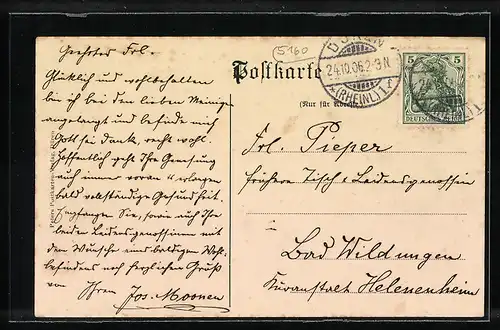 Geehrtes Frl.
Glücklich und wohlbehalten
bin ich bei den lieben Meinigen
angelangt und befinde mich
Gott sei dank, recht wohl.
Hoffentlich geht Ihre Genesung
auch immer voran u. erlangen
bald vollständige Gesundheit.
Empfangen Sie, sowie auch Ihre
beiden Leidensgenossinnen mit
dem Wunsche eines baldigen Wohl-
befindens noch herzlichen Gruß
von Ihrem Jos. Moonen
5160
Postkarte
(Nur für
DÜREN
24.10.06.2-3N
*(RHEINL.)1*
5 5
Frl. Pieper
frühere Tisch u. Leidensgenossin
Bad Wildungen
Kuranstalt Helenenheim